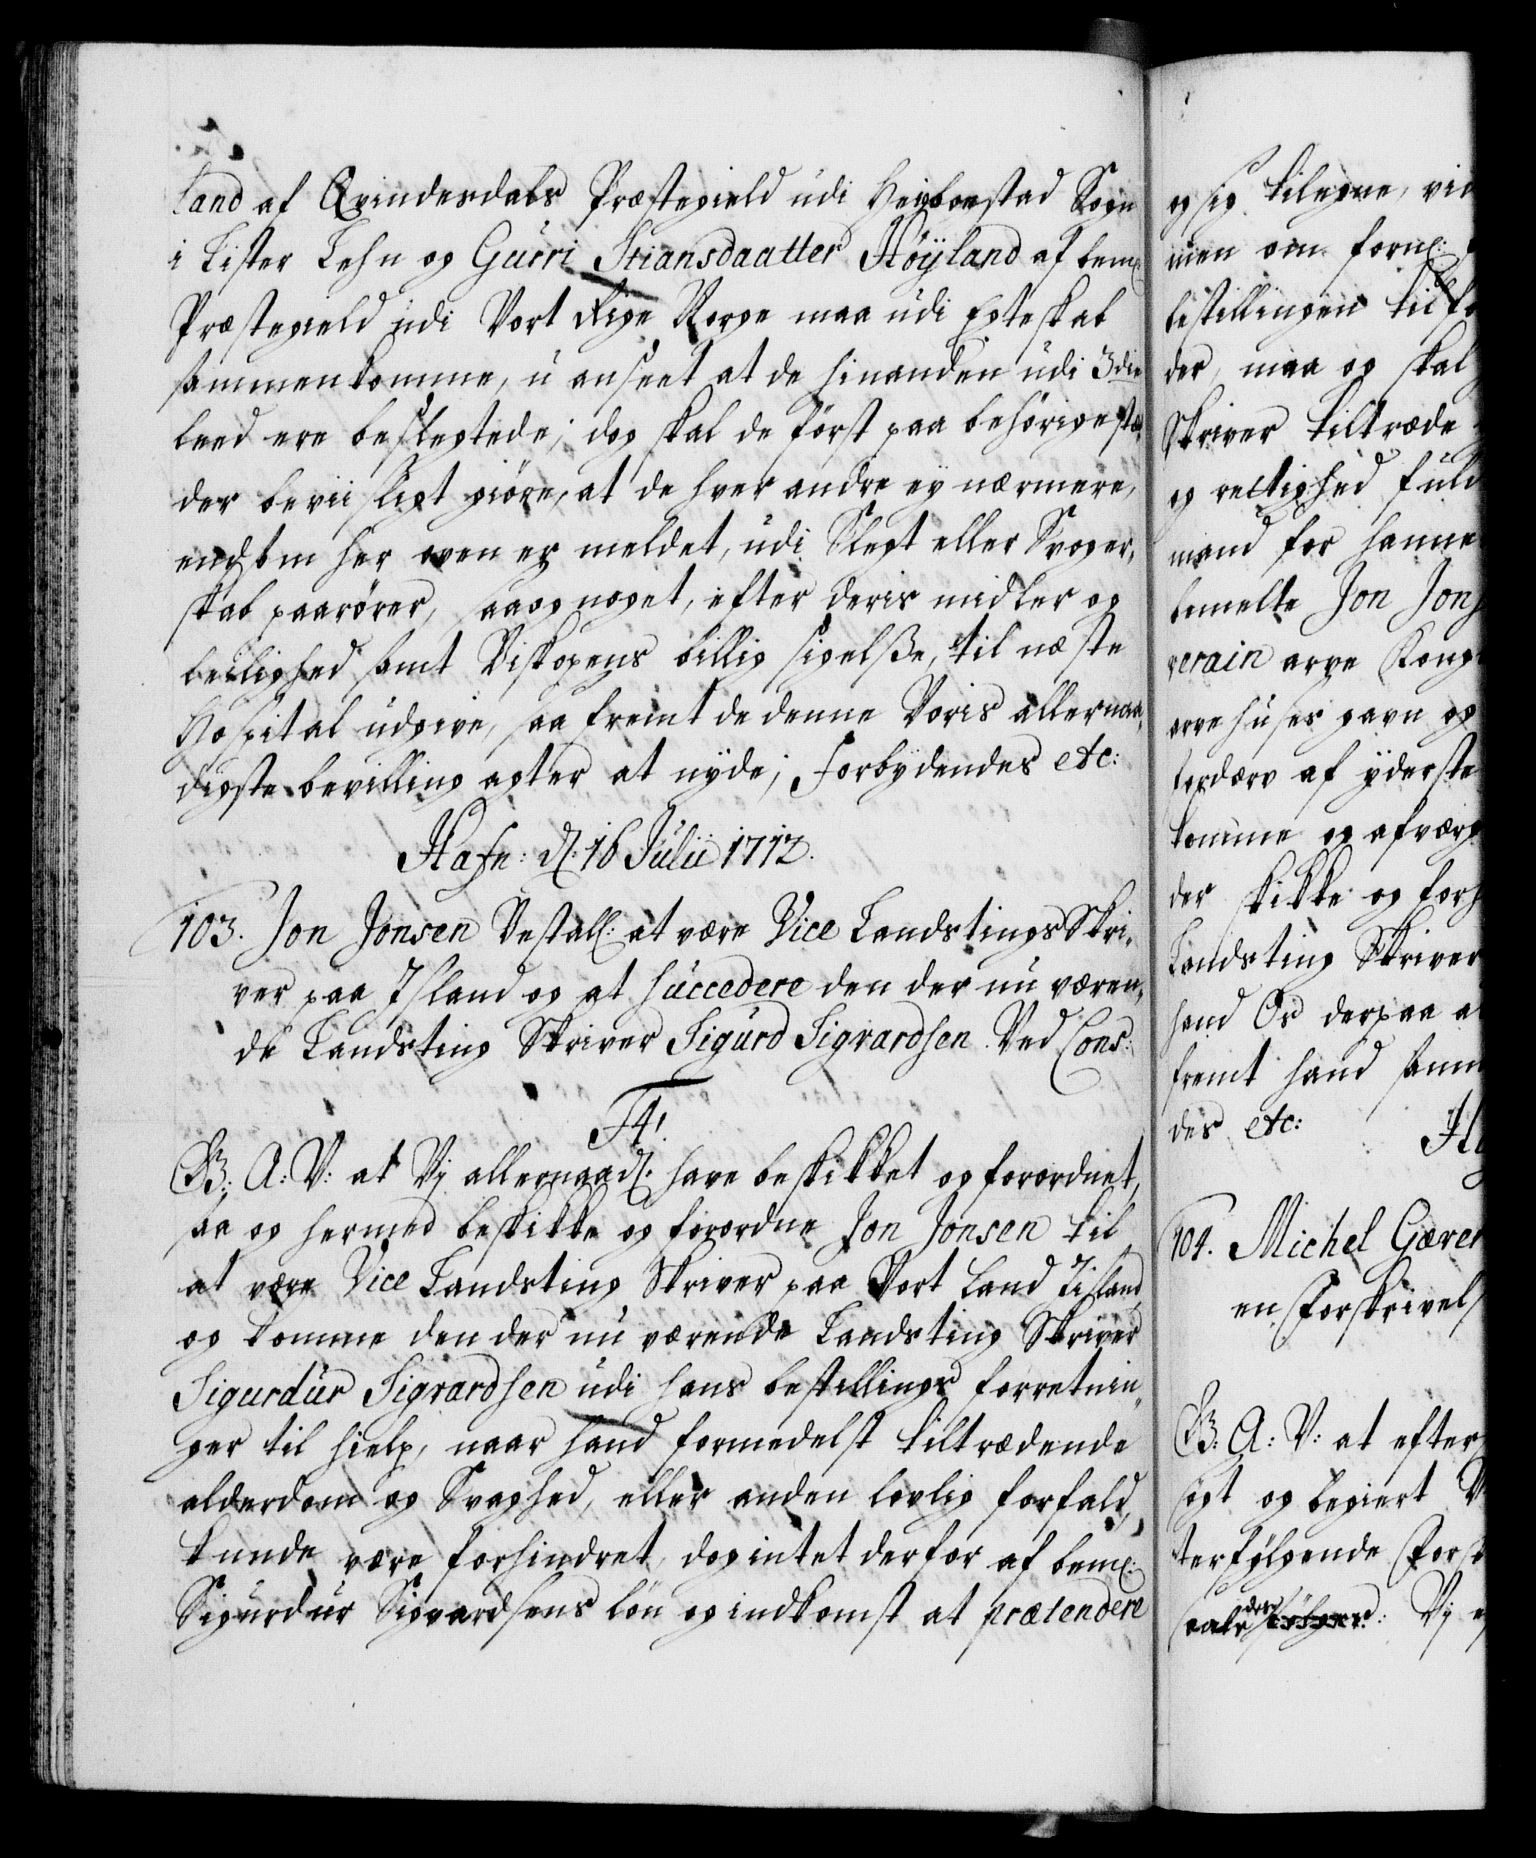 land af Qvindesdals Præstegield udi Heyboestad Sogn
i Lister Lehn og Gurri Stiansdaatter Höyland af bemt:
Præstegield udi Vort Rige Norge maa udi Egteskab
sammenkomme, u anseet at de hinanden udi 3die
leed ere beslegtede; dog skal de först paa behörige stæ,
der beviisligt giöre, at de hver andre ey nærmere,
endsom her oven er meldet, udi Slegt eller Svoger,
skab paarörer, saa og noget, efter deris midler og
leilighed samt Biskopens billig sigelße, til næste
Hospital udgive, saa fremt de denne Voris allernaa,
digste bevilling agter at nyde; Forbydendes etc:
Hafn: d. 16 Julii 1712.
103. Jon Jonsen Bestall: at være Vice Landstings Skri,
ver paa Island og at succedere den der nu væren,
de Landsting Skriver Sigurd Sigvardsen. Ved Cons:
F4t.
G: A: V: at Vj allernaad. have beskikket og forordnet,
saa og hermed beskikke og forordne Jon Jonsen til
at være Vice Landsting Skriver paa Vort Land Iisland,
og komme den der nu værende Landsting Skriver
Sigurdur Sigvardsen udi hans bestillings forretnin,
ger til hielp, naar hand formedelst tiltrædende
alderdom og Svaghed, eller anden lovlig forfald,
kunde være forhindret, dog intet derfor af bemt:
Sigurdur Sigvardsens lön og indkomst at prætendere
og sig tilegne, vi
men om fornt:
bestillingen
der, maa og skal
Skriver tiltræde
og rettighed fuld
mand for hanne
bemelte Jon Jons
verain arve Kong
arve huses gavn og
fordærv af yderste
komme og afværg
der skikke og forh
Landsting Skriver
hand Os derpaa a
fremt hand samm
des etc:
104. Michel Gærer
en Forskrivels
G: A: V: at efter
sögt og begiert V
terfölgende Forsk
Vj